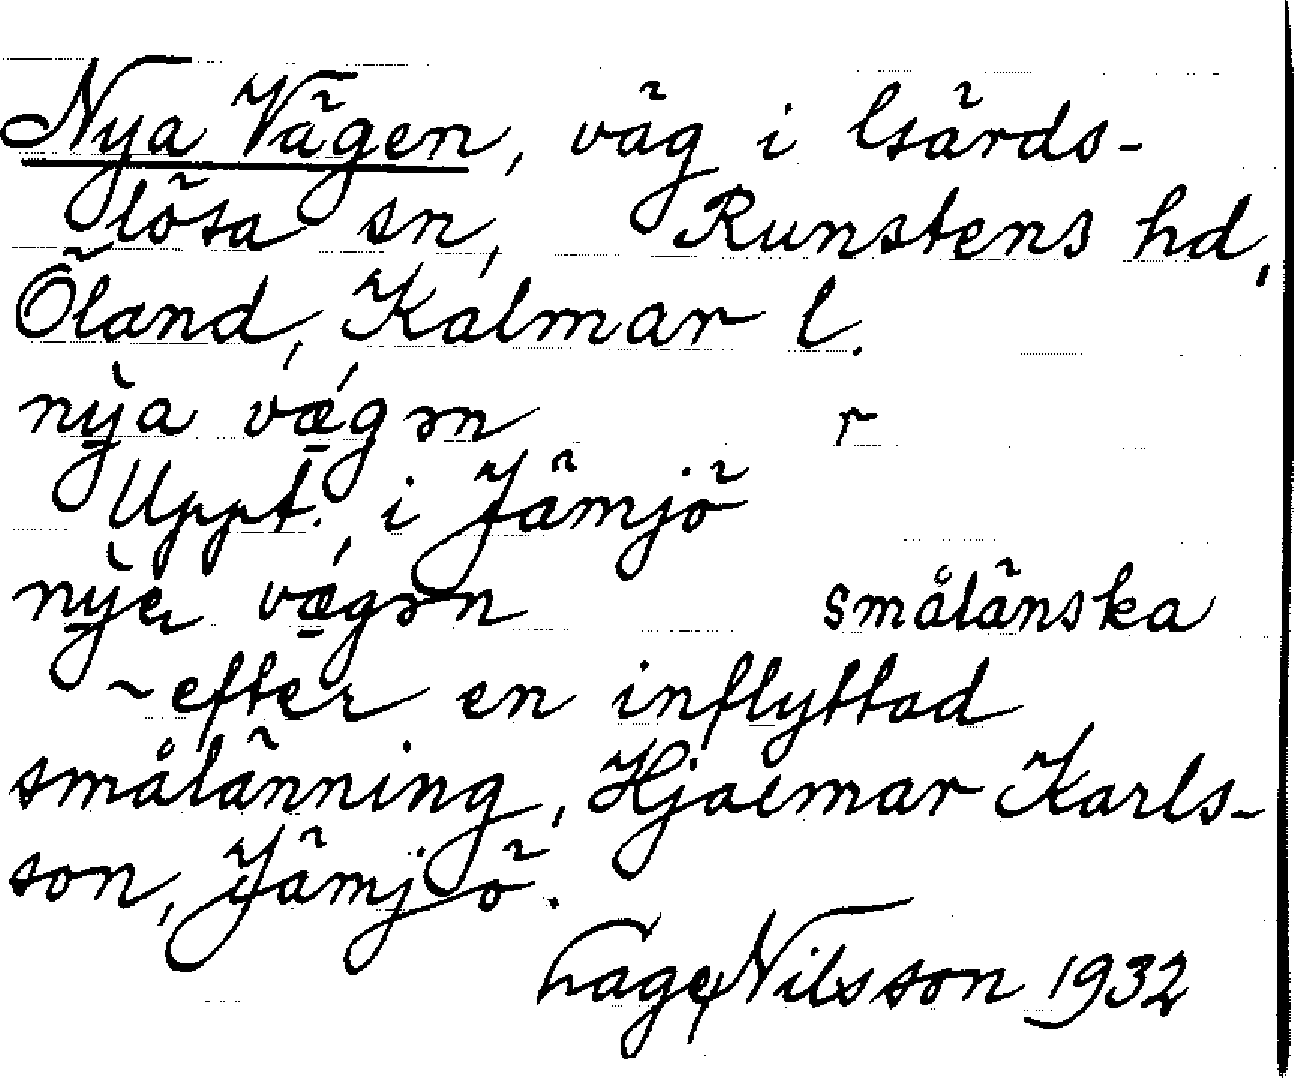 Nya Vägen, väg i Gärds-
lösa sn, Runstens hd,
Öland, Kalmar l.
nỳa vǽgən r
Uppt. i Jämjö
nỳer vǽgən smålänska
~ efter en inflyttad
smålänning, Hjalmar Karls-
son, Jämjö.
Lage Nilsson 1932